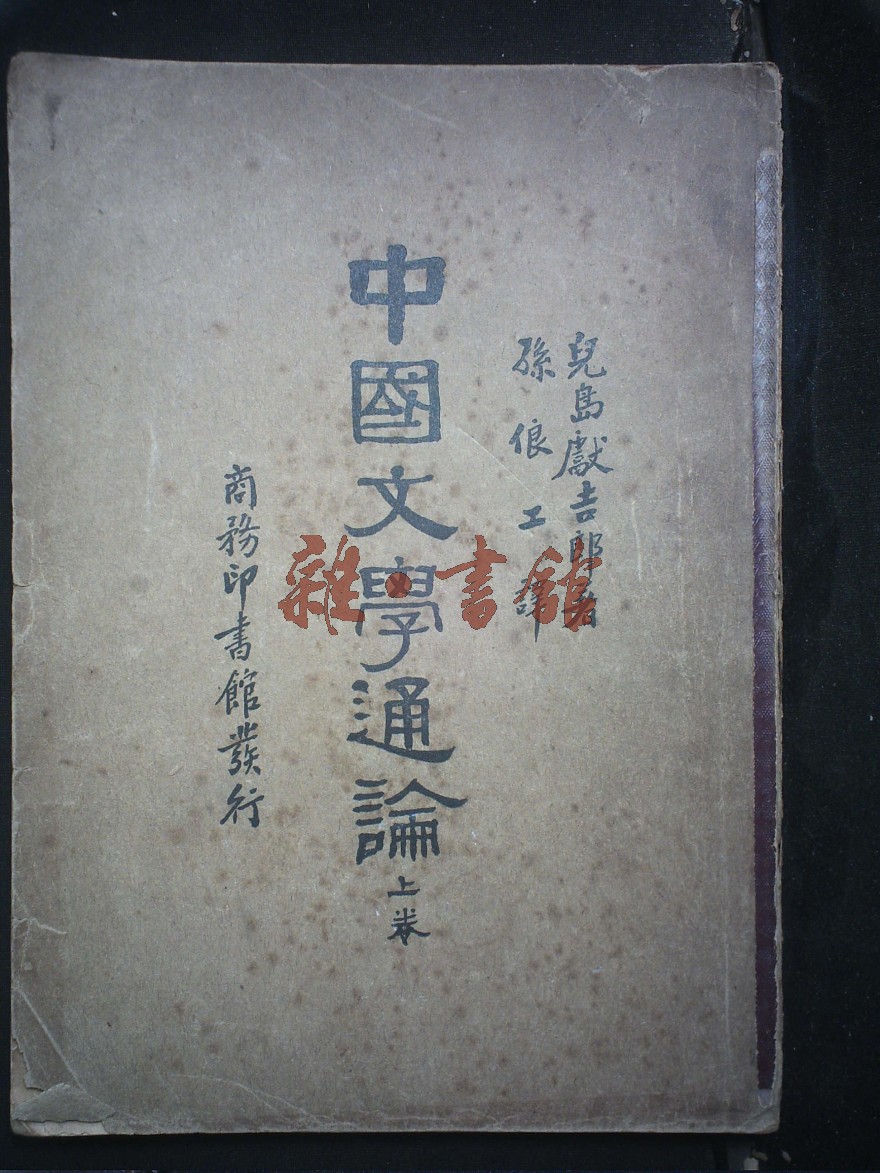 兒島獻吉郎著
孫俍工譯
中國文學通論 上卷
商務印書館發行
雜·書館